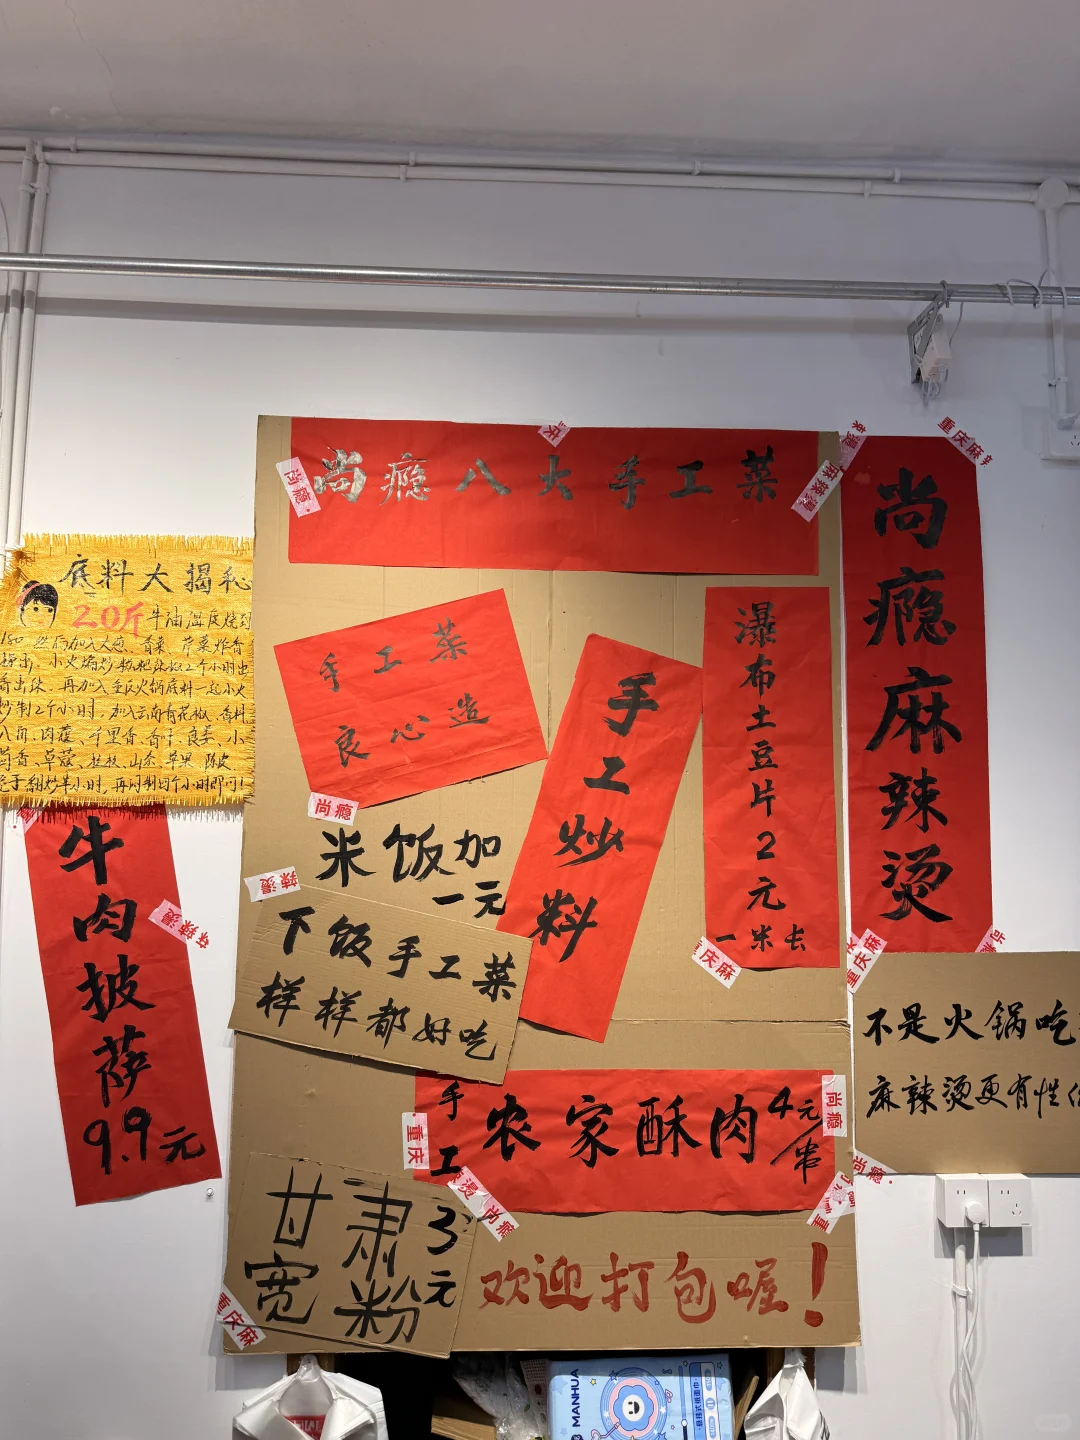 尚瘾八大手工菜
尚瘾麻辣烫
手工菜
良心造
手工炒料
瀑布土豆片2元
一米长
底料大揭秘
20斤牛油温度烧到
180 然后加入大葱 香菜 芹菜炸香
捞出 小火
2个小时出
再加入重庆火锅底料一起小火
炒制2个小时 加入云南青花椒 香料
八角 肉蔻 千里香 香
草果 陈皮
小时 再
个小时即可
牛肉披萨
9.9元
米饭加
一元
下饭手工菜
样样都好吃
不是火锅吃
麻辣烫更有性
手工
农家酥肉4元
串
甘肃
宽粉
3元
欢迎打包喔！
尚瘾
重庆麻
麻辣烫
辣烫
尚瘾
重庆麻
重庆麻
重庆
尚瘾
尚瘾
重庆麻
MANHUA